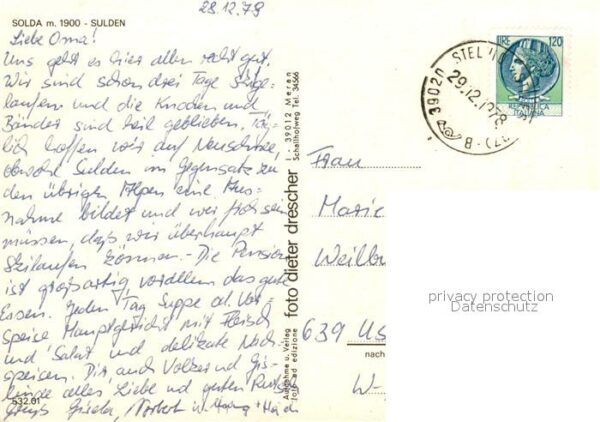 28.12.78
SOLDA m. 1900 - SULDEN
Liebe Oma!
Uns geht es hier allen recht gut.
Wir sind schon drei Tage Skige-
laufen und die Knochen und
Bänder sind heil geblieben. Täg-
lich hoffen wir auf Neuschnee,
obwohl Sulden im Gegensatz zu
den übrigen Alpen eine Aus-
nahme bildet und wir froh sein
müssen, daß wir überhaupt
Skilaufen können. - Die Pension
ist großartig, vor allem das gute
Essen. Jeden Tag Suppe od. Vor-
speise Hauptgericht mit Fleisch
und Salat und delikate Nach-
speisen. Dir, auch Volker und Gis-
linde alles Liebe und guten Rutsch
Gisela, Norbert u.
532.01
foto dieter drescher
I - 39012 Meran
Schallhofweg Tel. 34566
Aufnahme u. Verlag
foto ed edizione
LIRE 120
REPUBBLICA
ITALIANA
39020 STEL
29.12.1978
(BZ) - B
Frau
Marie
Weilbu
639 Us
nach
W-
privacy protection
Datenschutz